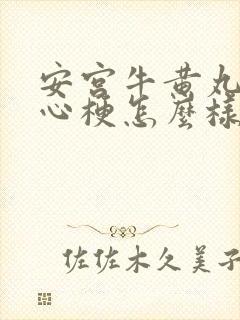 安宫牛黄丸
心梗怎麼樣
佐佐木久美子